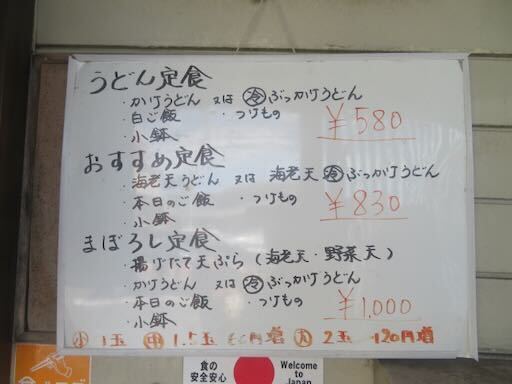 うどん定食
・かけうどん 又は ㊗ぶっかけうどん
・白ご飯 ・つけもの
・小鉢
¥580
おすすめ定食
・海老天うどん 又は 海老天 冷 ぶっかけうどん
・本日のご飯 ・つけもの
・小鉢
¥830
まぼろし定食
・揚げたて天ぷら(海老天・野菜天)
・かけうどん 又は 冷 ぶっかけうどん
・本日のご飯 ・つけもの
・小鉢
¥1,000
小 1玉 中 1.5玉 60円増 大 2玉 120円増
食の
安全安心
Welcome
to
Japan